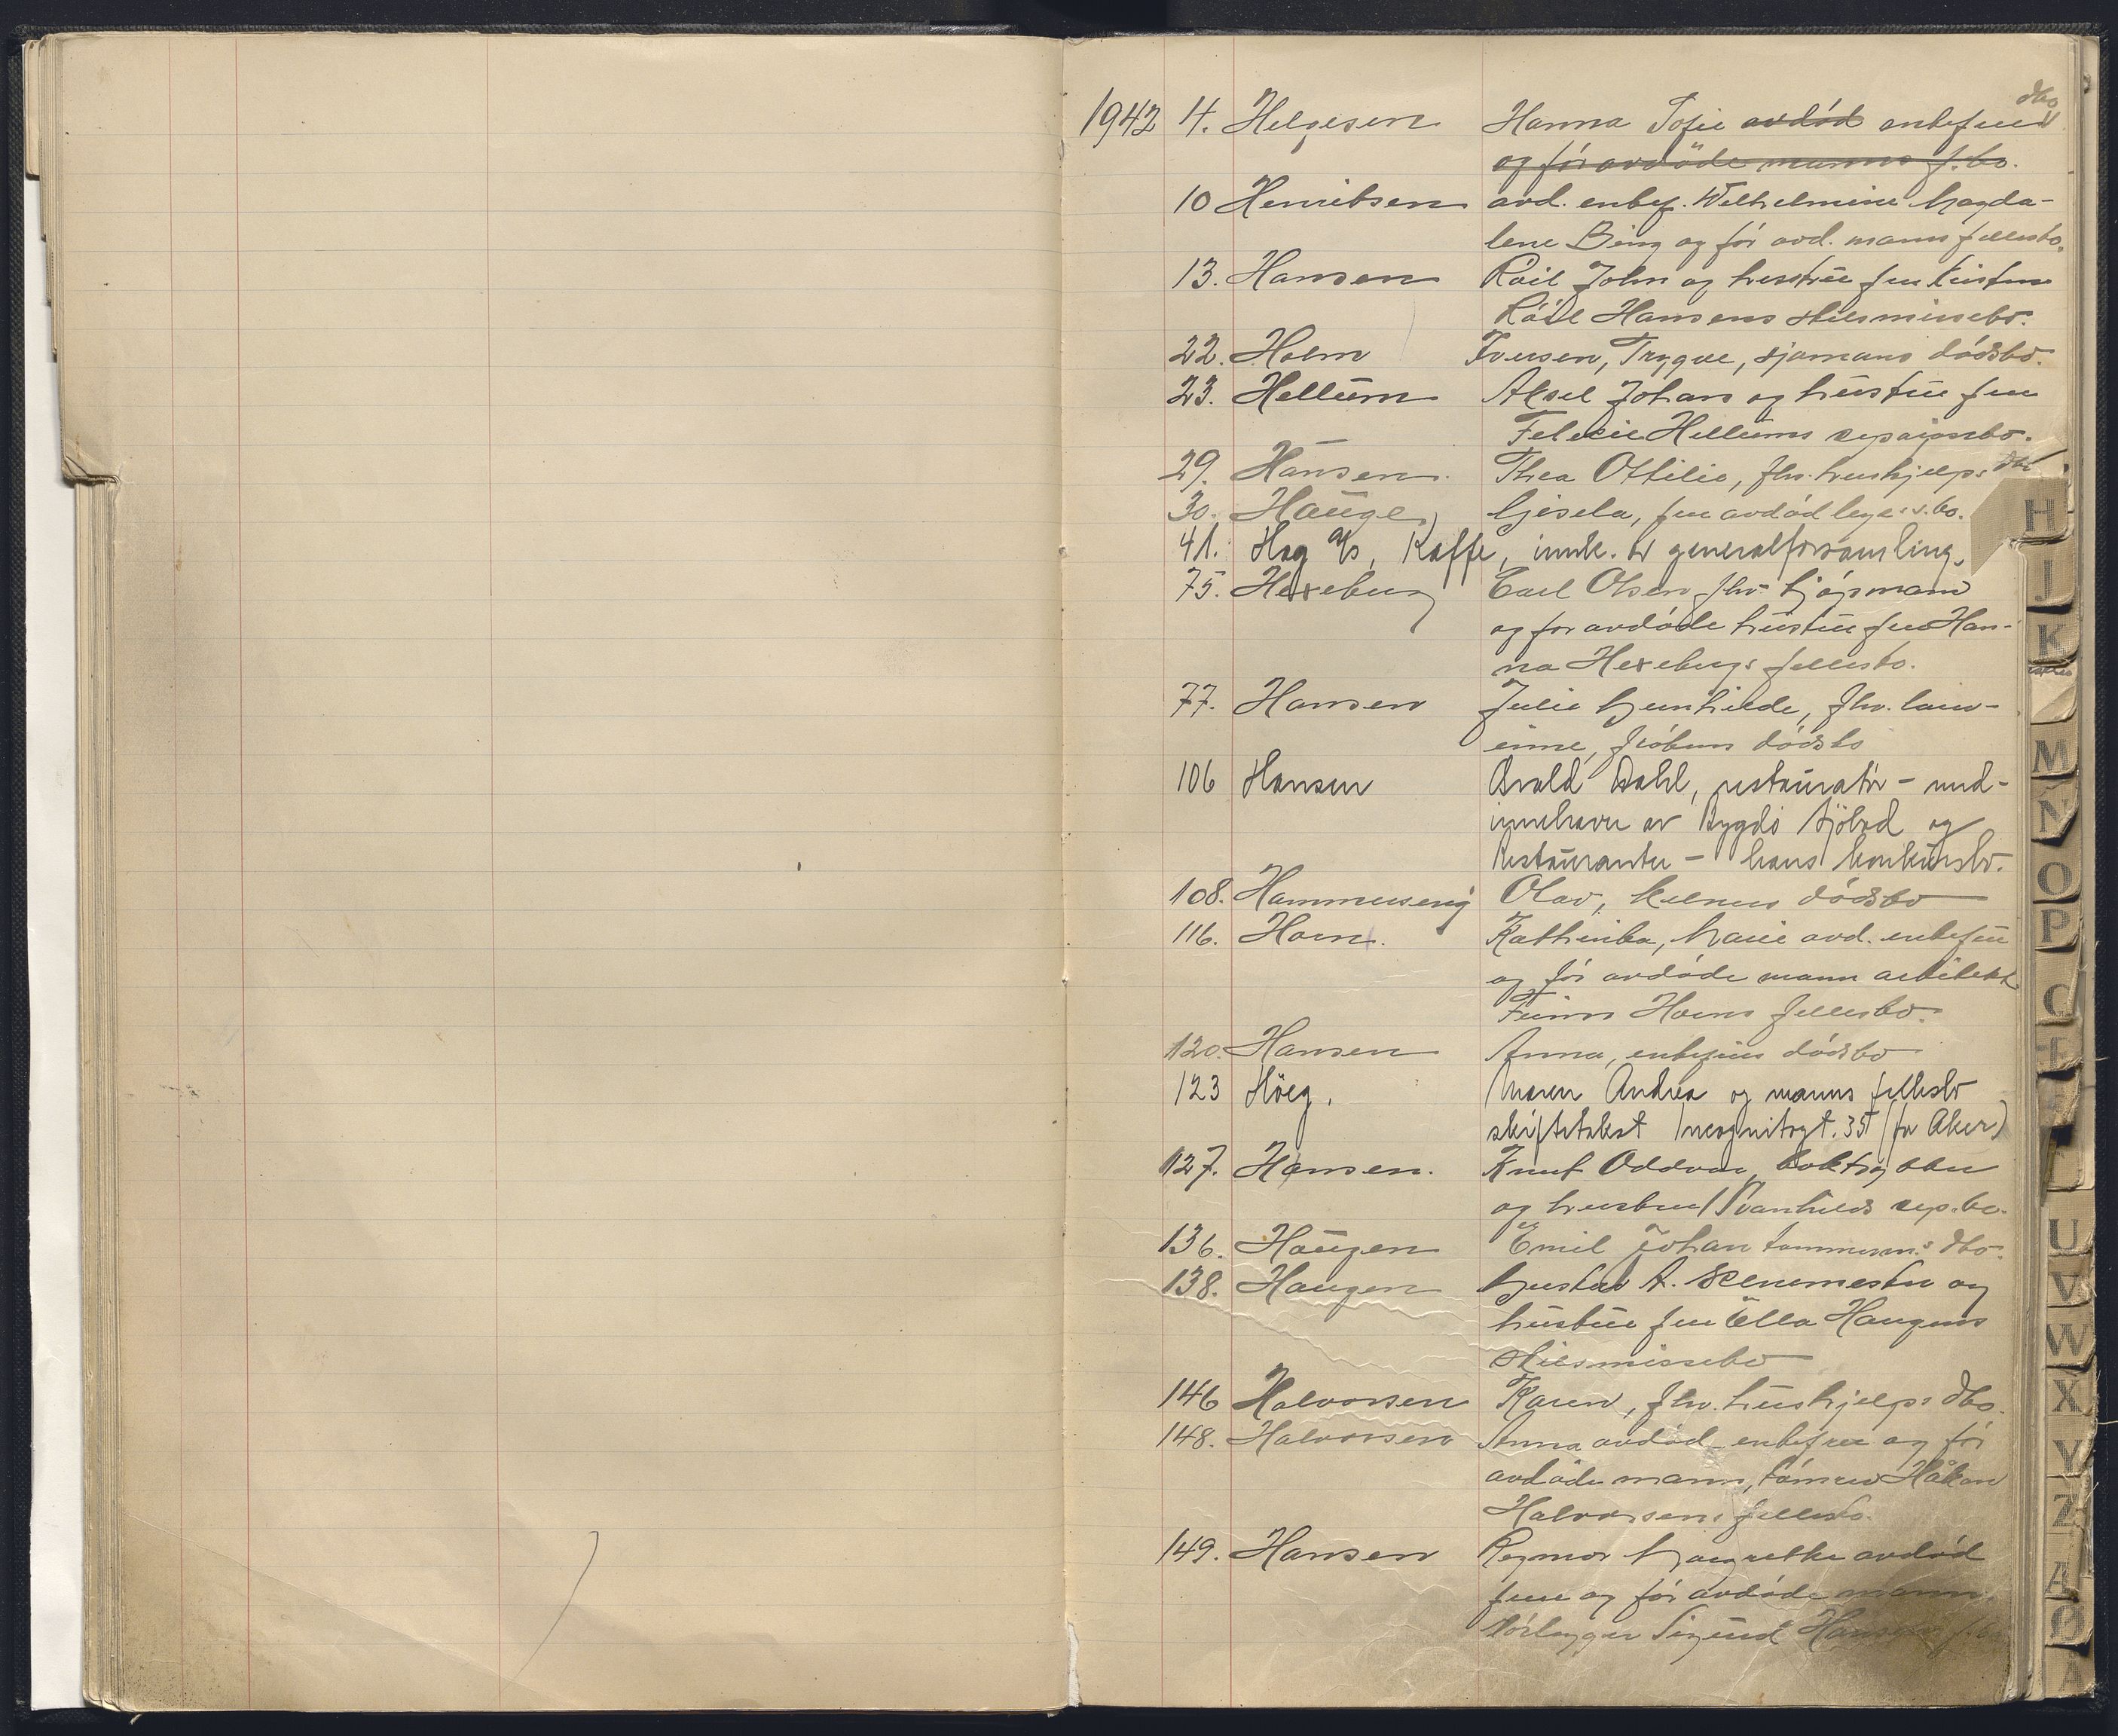 dbo
1942 4. Helgesen Hanna Sofie avdød enkefrue
og for avdøde manns f.bo.
10 Henriksen avd. enkef. Wilhelmine Magda-
lene Bing og før avd. manns fellesbo.
13. Hansen Röil John og hustrü frue Kirsten
Röil Hansens skilsmissebo.
22. Holm Iversen, Trygve, sjømanns dødsbo.
23. Hellüm Aksel Johans og hüstrü frue
Felecie Hellüms sepasjonsbo.
29. Hansen. Thea Ottilie, fhv. hushjelps dbo
30. Haüge, Gisela, frue avdød leges s.bo.
41. Hag A/S, Kaffe, innk. av generalforsamling.
75. Hexeberg Carl Olsen fhv. kjøpmann
og for avdøde hüstrü frue Han-
na Hexebergs fellesbo.
77. Hansen Julie Gunhilde, fhv. lærer-
inne, frökens dödsbo
106 Hansen Arvald Dahl, restauratør - med-
innehaver av Bygdö Sjöbad og
Restauranter - hans konkürsbo.
108. Hammerseng Olav, kelners dödsbo
116. Horn. Kathinka, Marie avd. enkefrü
og för avdøde mann arkitekt
Finns Horns fellesbo.
120. Hansen Anna, enkefrüs dödsbo
123 Höeg. Maren Andrea og manns fellesbo
skiftetakst Incognitogt. 35 (for Aker)
127. Hansen. Knut Oddvar boktrykker
og hustrue Svanhilds sep.bo.
136. Haügen Emil Johan tømmerm.s dbo.
138. Haugen Gustav A. scenemester og
hüstrü frue Ella Haugens
skilsmissebo
146 Halvorsen Karen, fhv. hüshjelps dbo.
148. Halvorsen Anna avdød enkefrue og før
avdøde mann, tømrer Håkon
Halvorsens fellesbo.
149. Hansen Ragmor Margrethe avdød
frue og för avdøde mann,
rørlegger Sigurd Hansens f.bo
H
J
K
M
N
O
P
U
V
W
X
Y
Z
Ø